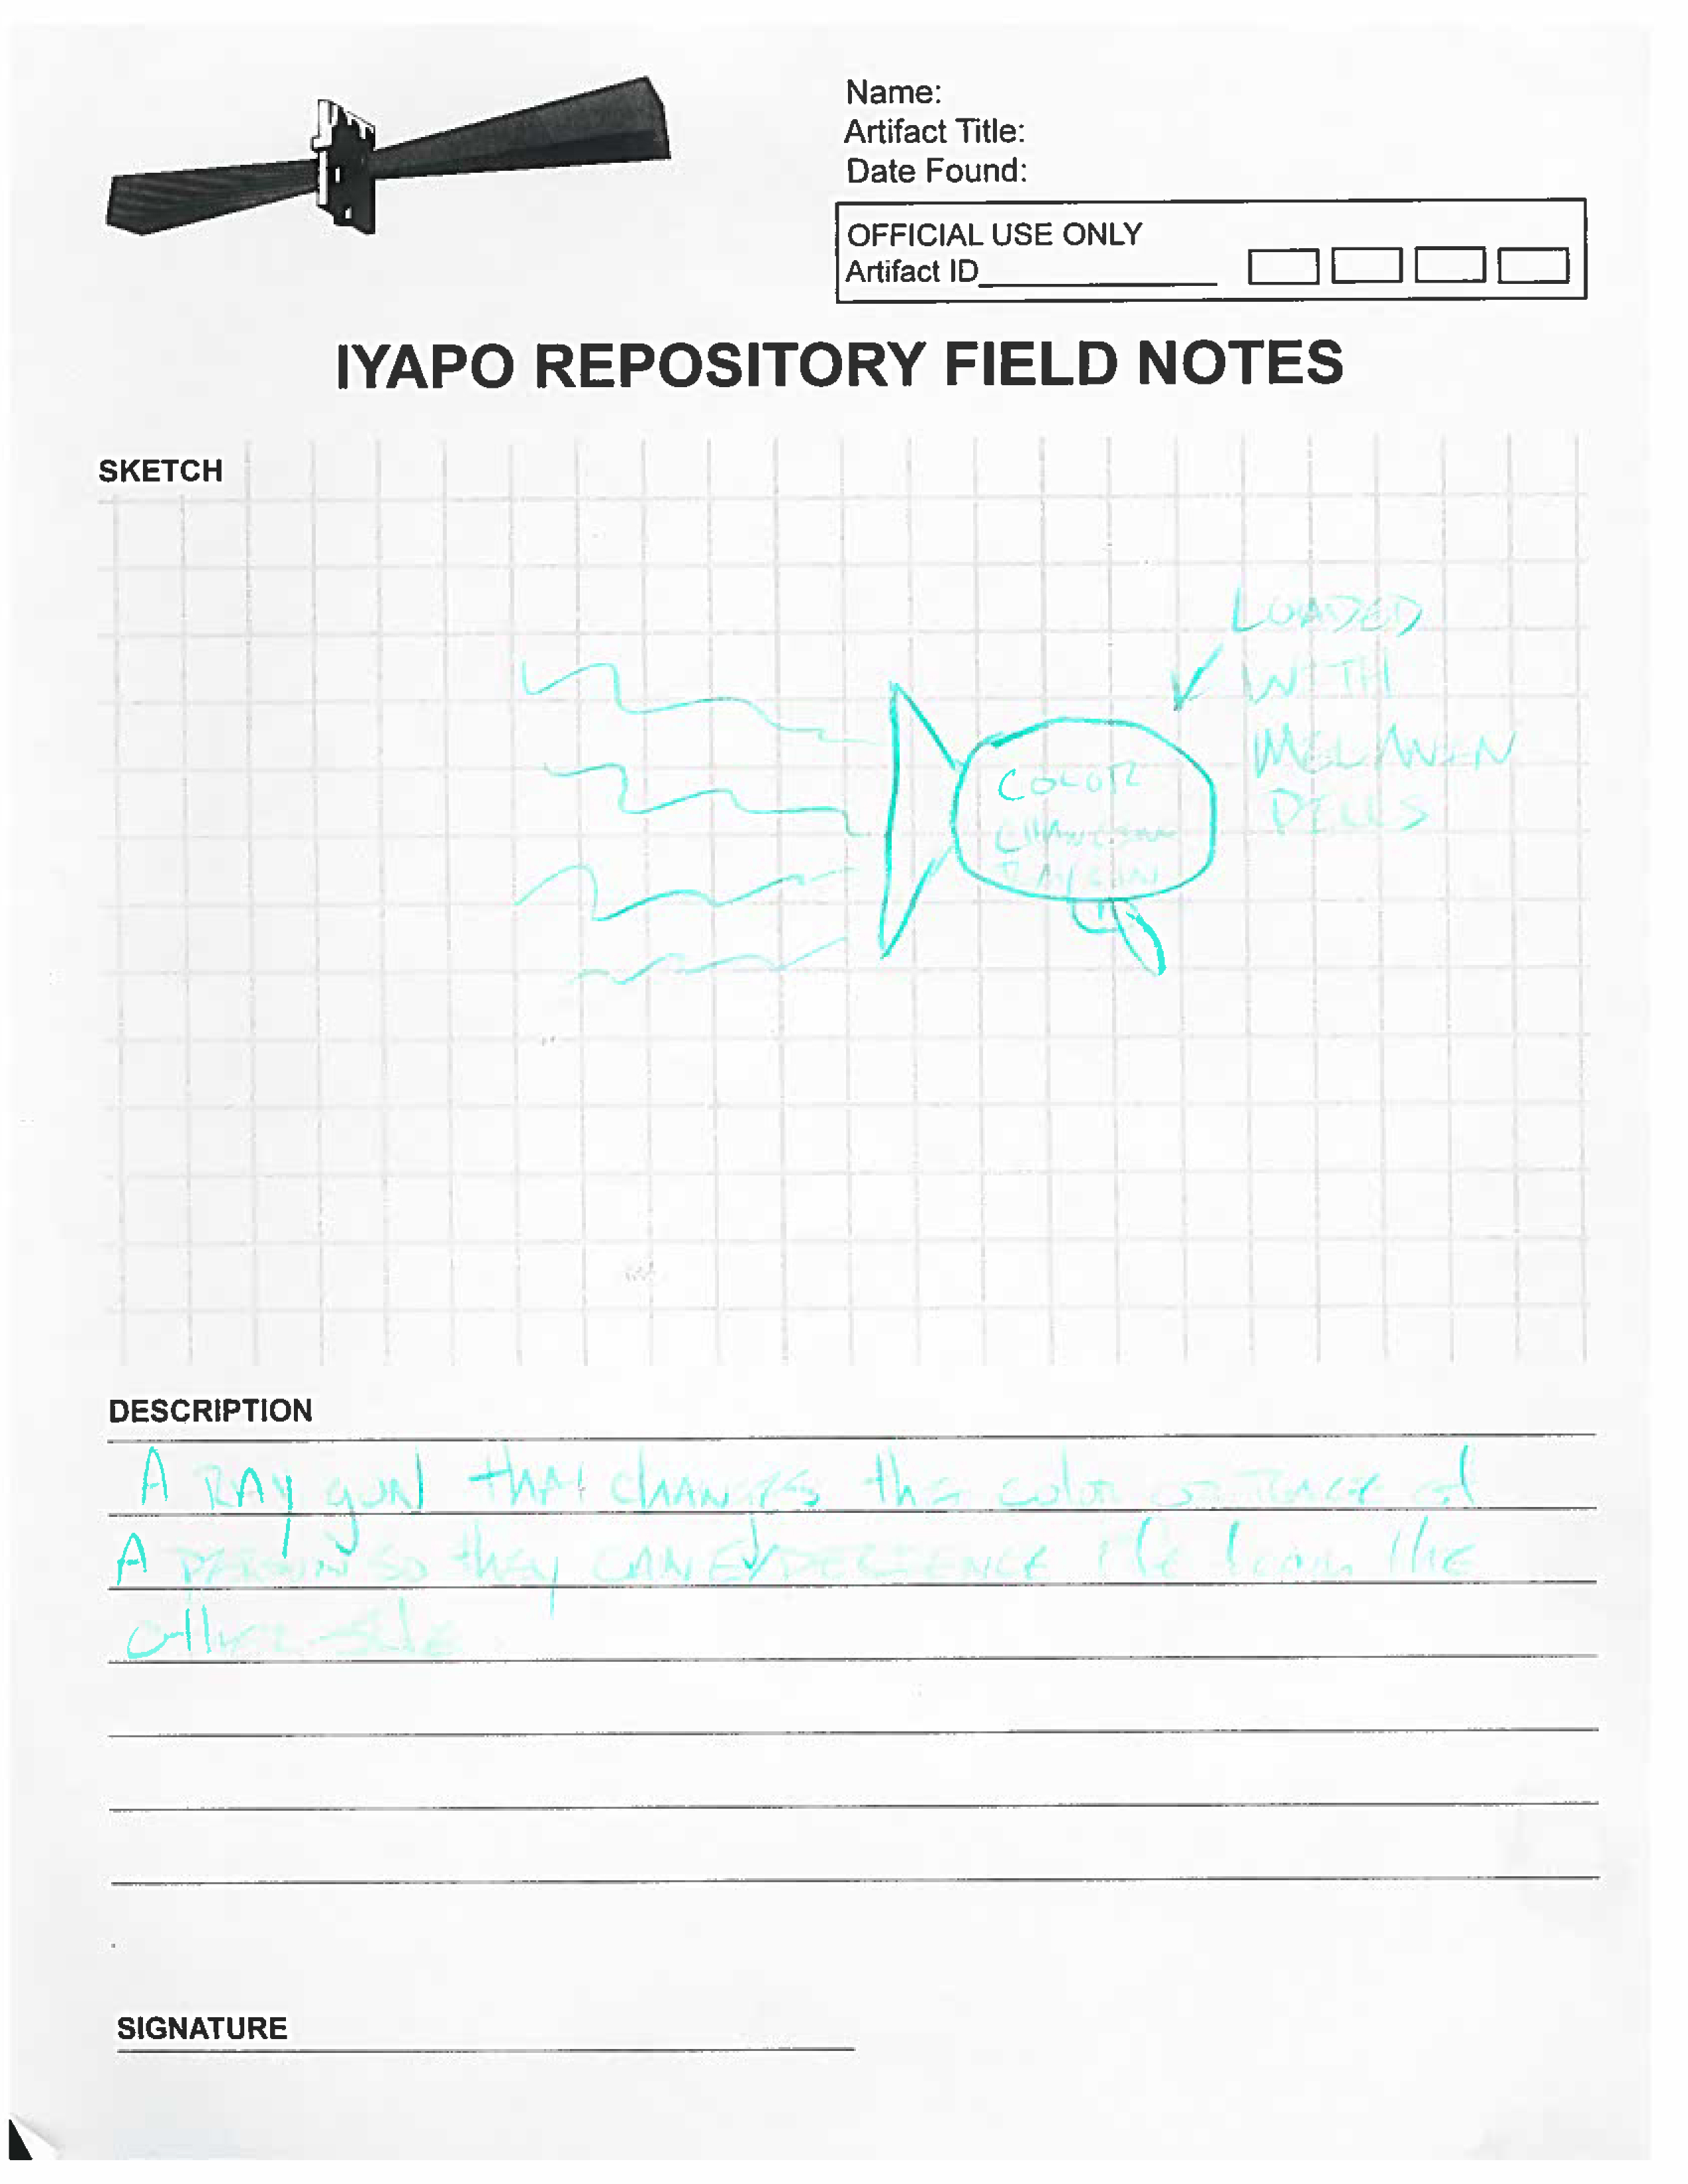 Name:
Artifact Title:
Date Found:
OFFICIAL USE ONLY
Artifact ID
IYAPO REPOSITORY FIELD NOTES
SKETCH
LOADED
WITH
MELANIN
COLOR
RAYGUN
DESCRIPTION
A RAY gUN thAt chANgES the color or RACE of
A PERSON SO they CAN EXPERIENCE life from the
other side
SIGNATURE